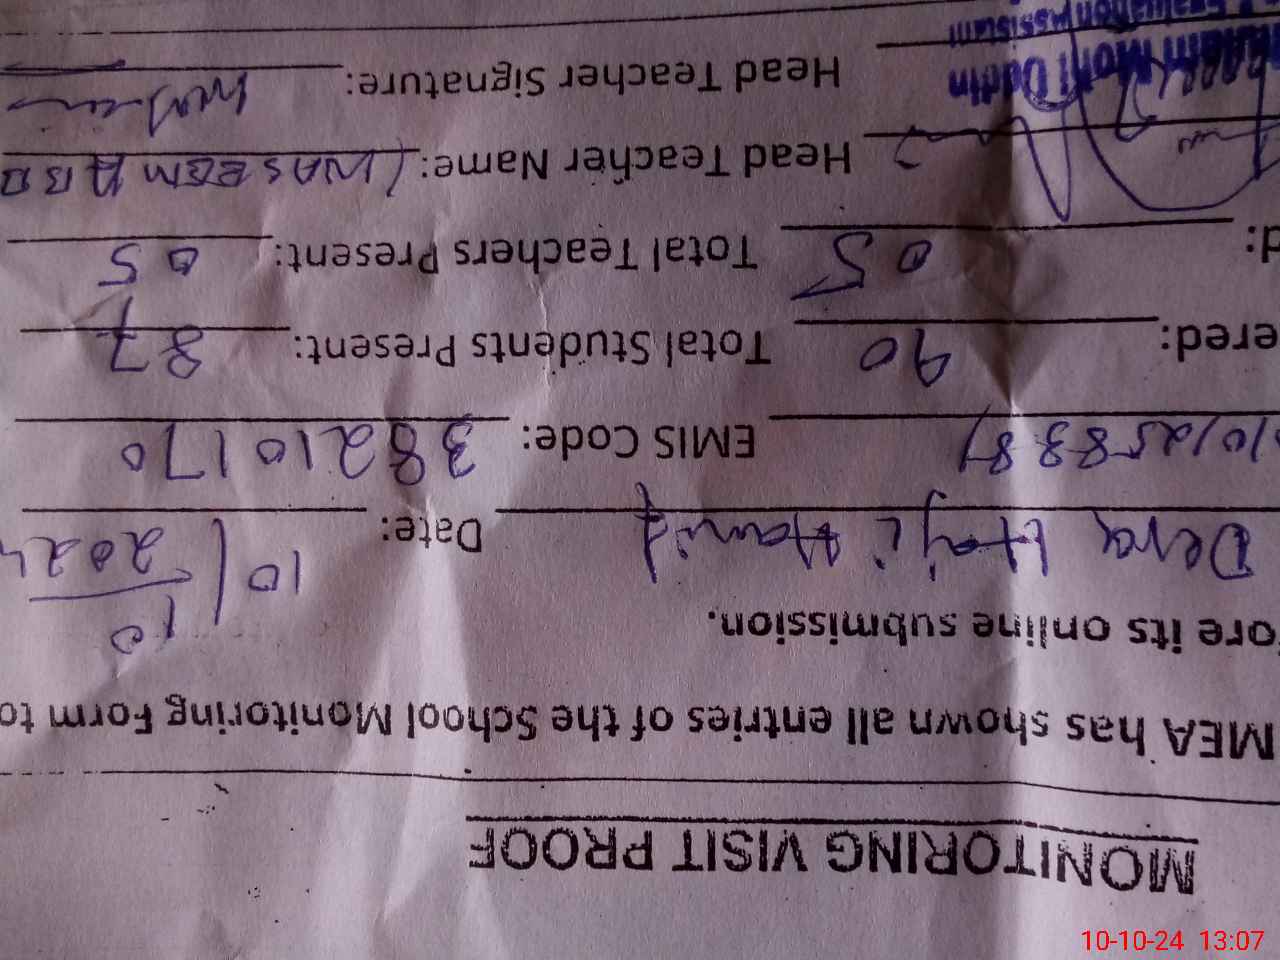 MONITORING VISIT PROOF
MEA has shown all entries of the School Monitoring Form to
ore its online submission.
Dera Haji Hamid Date: 10/10/2024
EMIS Code: 38210170
ered: 90 Total Students Present: 87
d: 05 Total Teachers Present: 05
Head Teacher Name: WASEEM ABB
Head Teacher Signature:
10-10-24 13:07